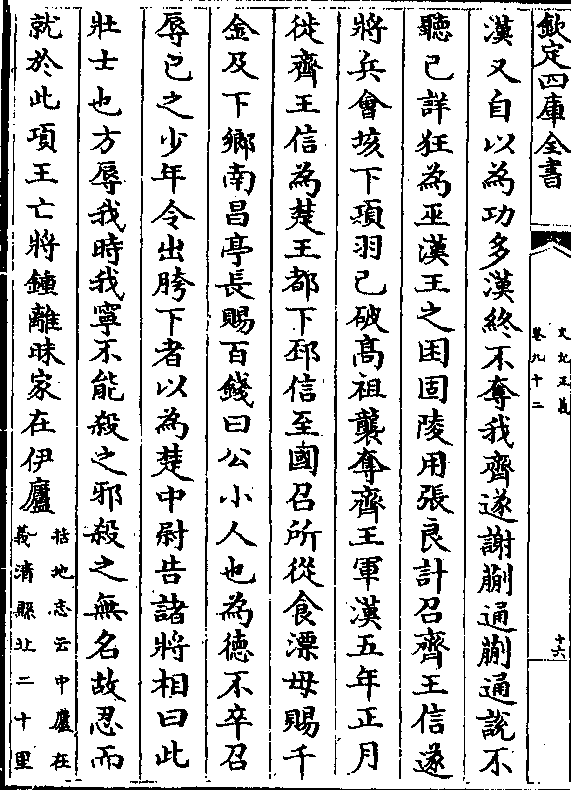 欽定四庫全書
史記正義
卷九十二
十六
漢又自以為功多漢終不奪我齊遂謝蒯通蒯通說不
聽已詳狂為巫漢王之困固陵用張良計召齊王信遂
將兵會垓下項羽已破高祖襲奪齊王軍漢五年正月
徙齊王信為楚王都下邳信至國召所從食漂母賜千
金及下鄉南昌亭長賜百錢曰公小人也為德不卒召
辱已之少年令出胯下者以為楚中尉告諸將相曰此
壯士也方辱我時我寧不能殺之邪殺之無名故忍而
就於此項王亡將鍾離眜家在伊廬
括地志云中廬在
義清縣北二十里